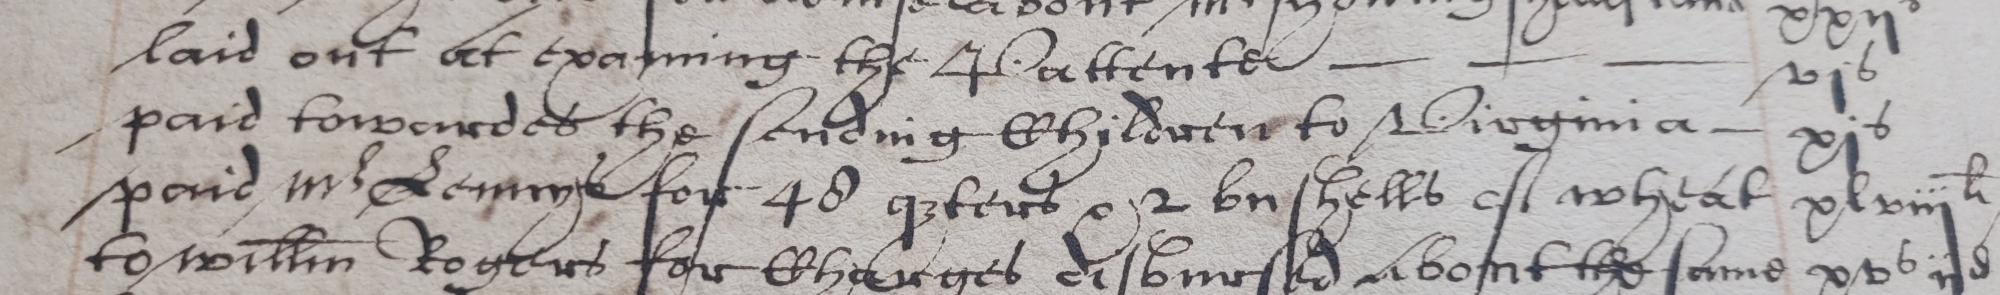 about
laid out at examining the Pattente — — — vjs
paid towardes the sending Children to Virginia — xjs
paid mr for 48 qters & 2 bushells of wheat xlviijli
to willm Rogers for Charges disbursed about the same xvs ijd